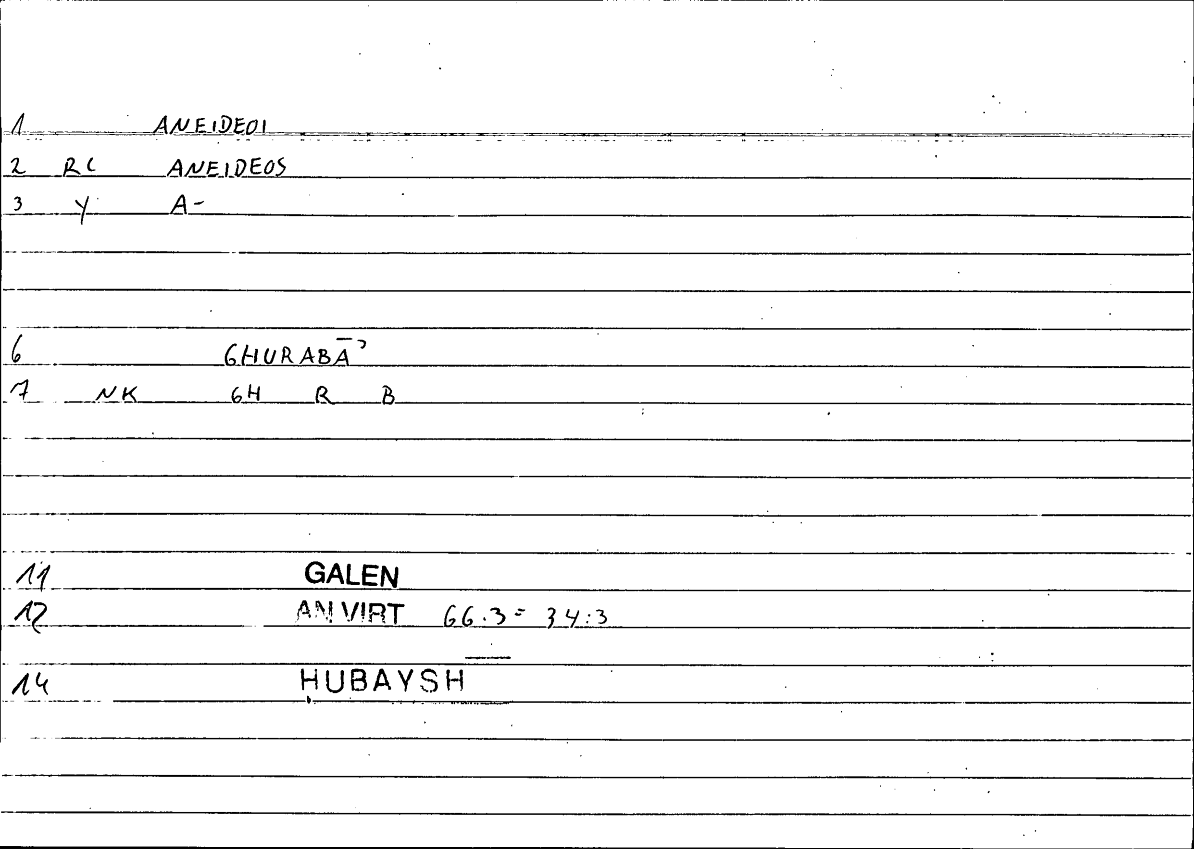 1 ANEIDEOI
2 RC ANEIDEOS
3 Y A-
6 GHURABĀʾ
7 NK GH R B
11 GALEN
12 AN VIRT 66.3 = 34:3
14 HUBAYSH